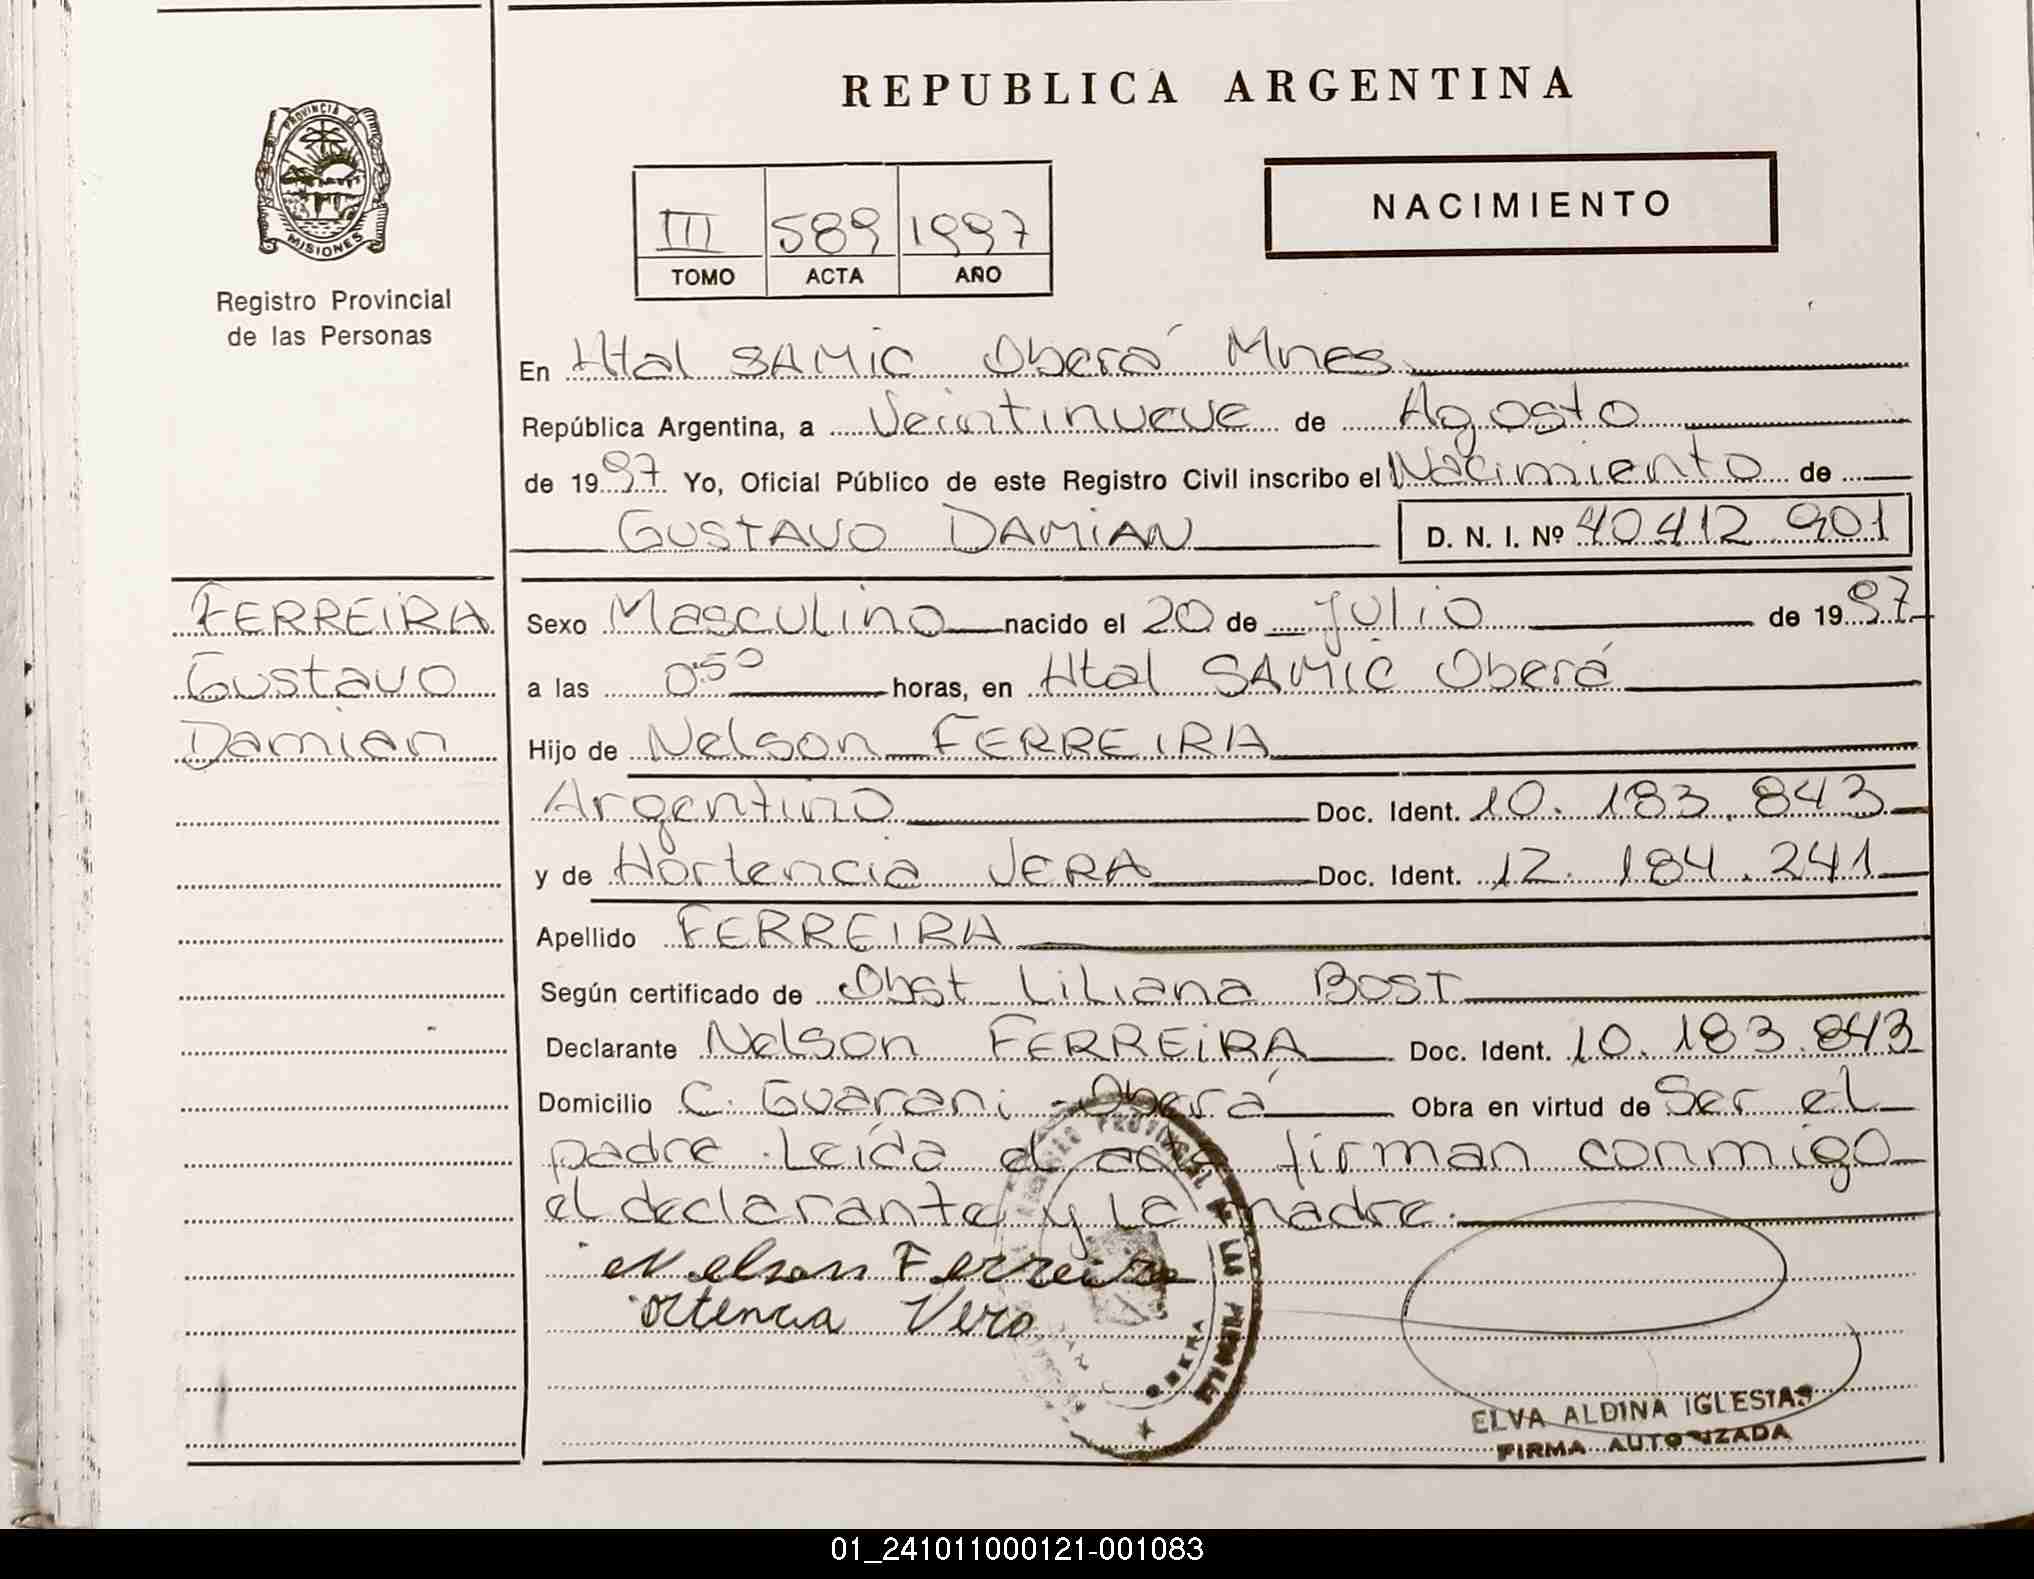 REPUBLICA ARGENTINA
PROVINCIA DE
MISIONES
Registro Provincial
de las Personas
NACIMIENTO
III 589 1997
TOMO ACTA AÑO
En Htal SAMIC Oberá Mnes
República Argentina, a Veintinueve de Agosto
de 1997 Yo, Oficial Público de este Registro Civil inscribo el Nacimiento de
GUSTAVO DAMIAN D. N. I. Nº 40.412.901
FERREIRA
Gustavo
Damian
Sexo Masculino nacido el 20 de Julio de 1997
a las 0:50 horas, en Htal SAMIC Oberá
Hijo de Nelson FERREIRA
Argentino Doc. Ident. 10.183.843
y de Hortencia VERA Doc. Ident. 12.184.241
Apellido FERREIRA
Según certificado de Obst Liliana BOST
Declarante Nelson FERREIRA Doc. Ident. 10.183.843
Domicilio C. Guarani - Oberá Obra en virtud de Ser el
padre. Leída el acta firman conmigo
el declarante y la madre.
Nelson Ferreira
ortencia Vera
OBERA
ELVA ALDINA IGLESIAS
FIRMA AUTORIZADA
01_241011000121-001083